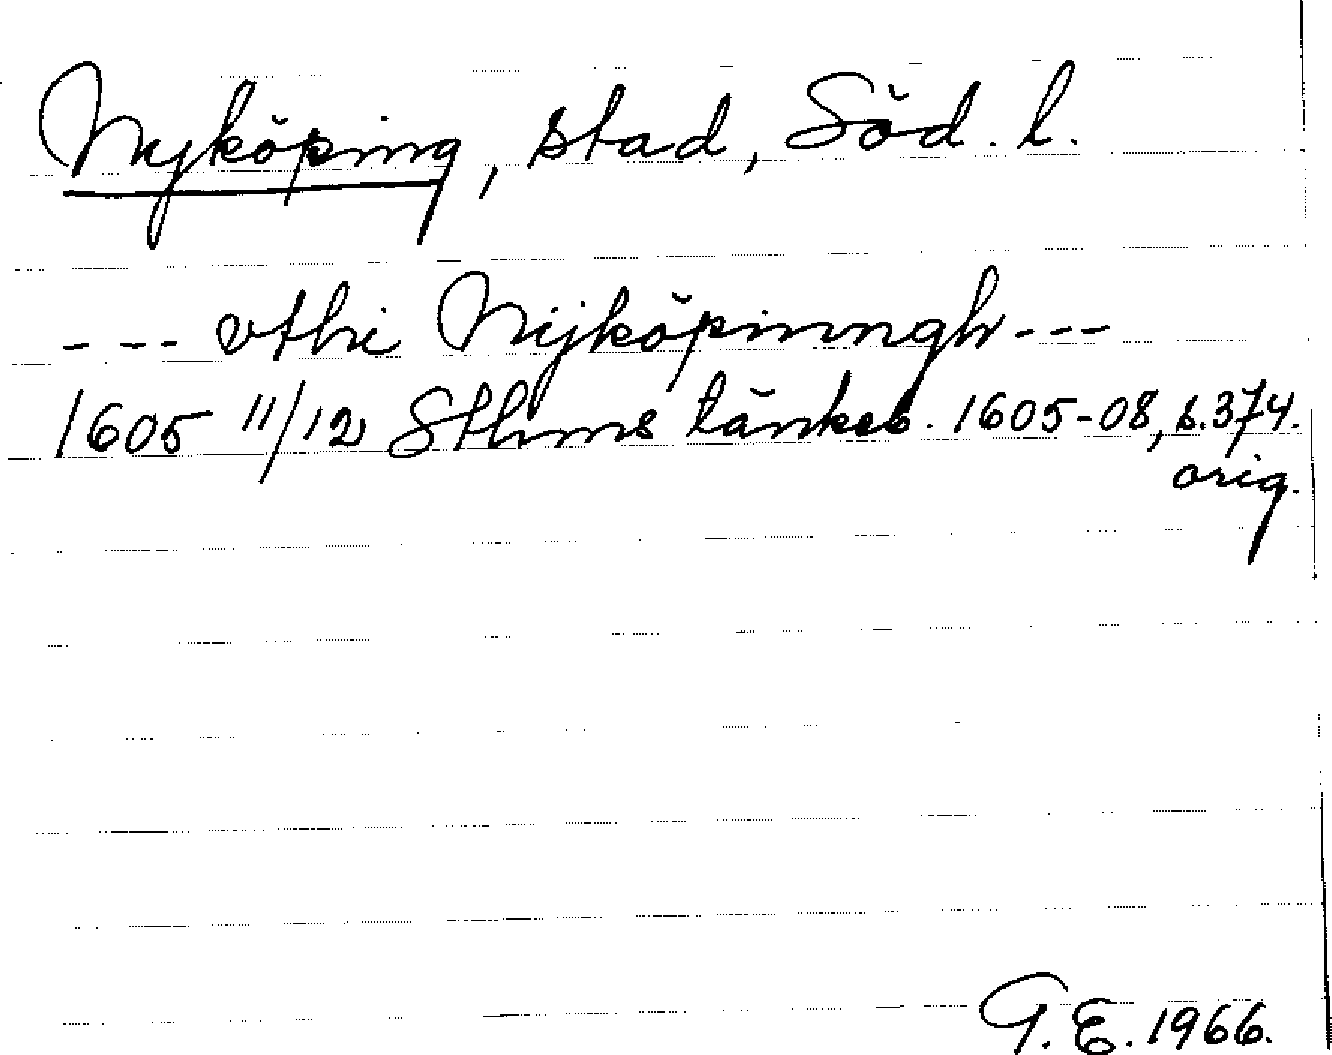 Nyköping, stad, Söd. l.
--- vthi Nijköpinngh ---
1605 11/12 Sthms tänkeb. 1605-08, s. 374.
orig.
G. E. 1966.